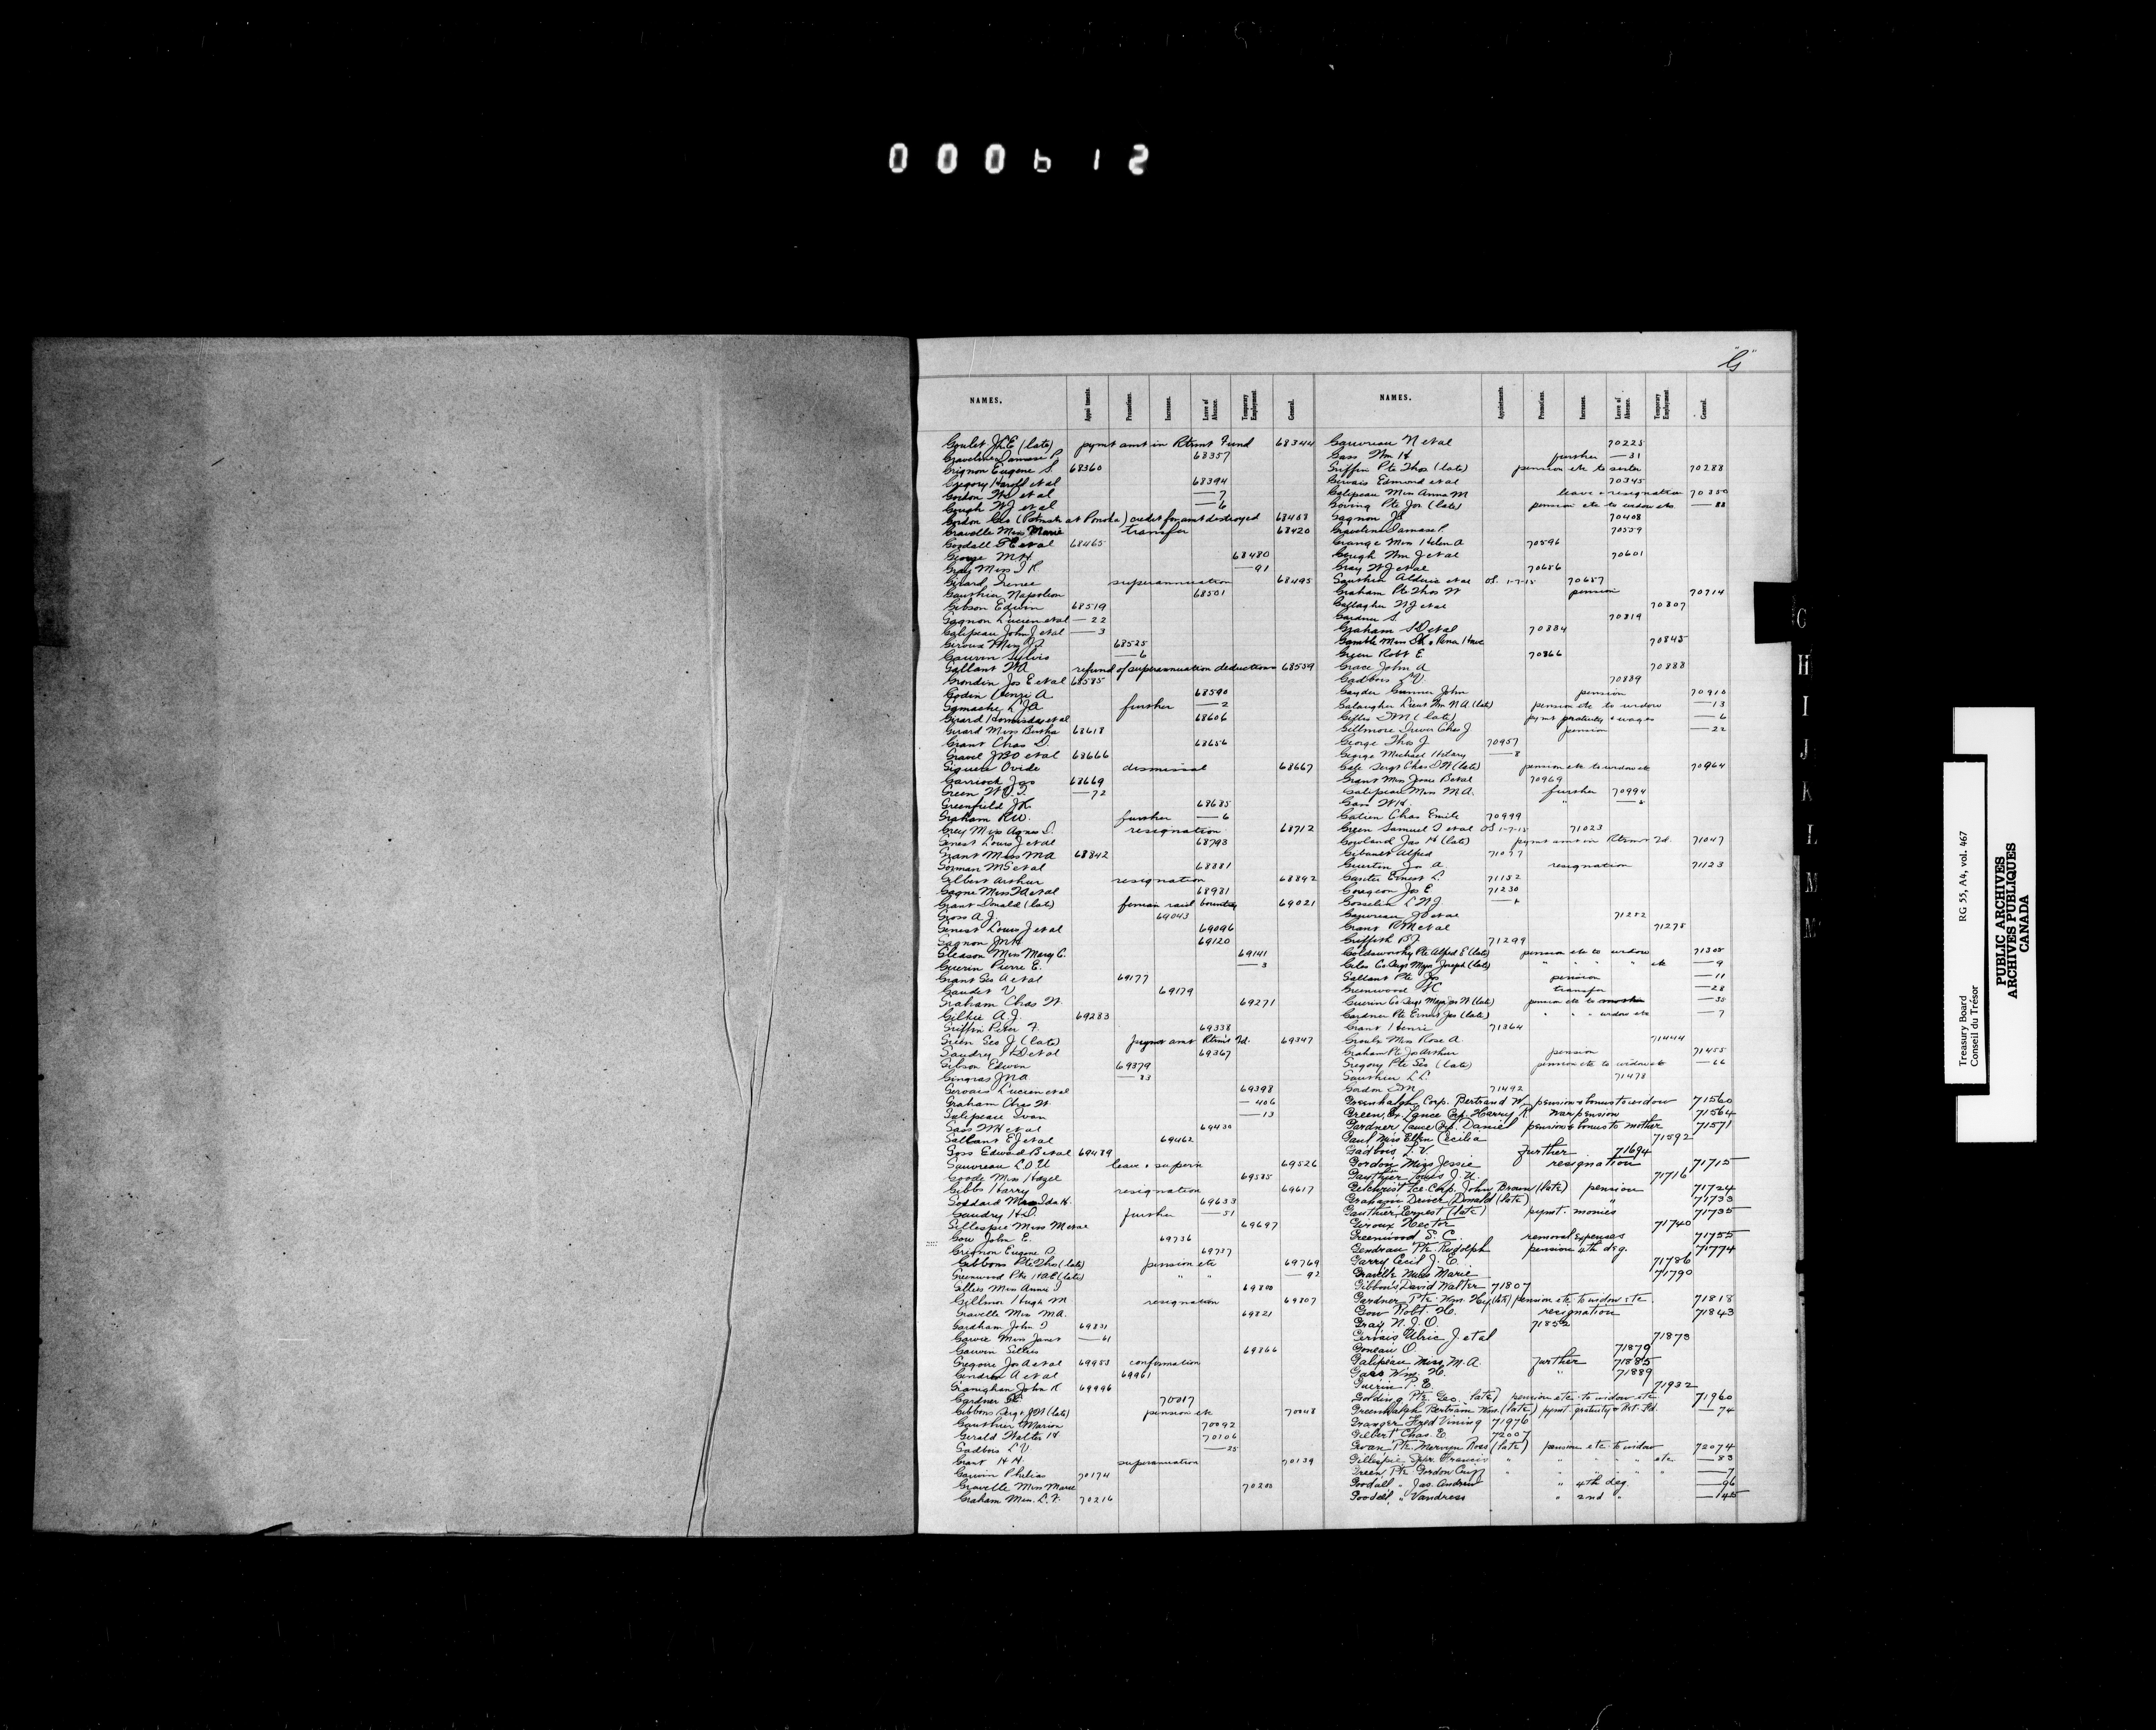 000612
"G"
NAMES. Appointments. Promotions. Increases. Leave of Absence. Temporary Employment. General.
Goulet J.L.E (late) pymt amt in Rtrmt Fund 68344
Graveline Damase P. 68357
Grignon Eugene S. 68360
Gregory Harold et al 68394
Gordon et al — 7
Gough W J et al — 6
Gordon Geo (Postmstr at Ponoka) credit for amt destroyed
Gravelle Miss Marie transfer 68420
Goodall et al 68465
George M.H. 68480
Gray Miss I R — 91
Girard, Irenee superannuation 68495
Gauthier Napoleon 68501
Gibson Edwin 68519
Gagnon Lucien et al — 22
Galipeau John J et al — 3
Giroux Miss 68525
Gauvin Sylvio — 6
Gallant W A refund of superannuation deductions 68559
Grondin Jos E et al 68585
Godin Henri A 68590
Gamache L J A further — 2
Girard Hormisdas et al 68606
Girard Miss Bertha 68618
Grant Chas D. 68656
Gravel J B O et al 68666
Giguere Ovide dismissal 68667
Garriock Jas 68669
Green W. — 72
Greenfield J R. 68685
Graham R W. further — 6
Grey Miss Agnes D. resignation 68712
Genest Louis J et al 68793
Grant Miss M A 68842
Gorman M S et al 68881
Gilbert Arthur resignation 68892
Gagne Miss et al 68981
Grant Donald (late) fenian raid bounty 69021
Gross A J. 69043
Genest Louis J et al 69096
Gagnon 69120
Gleason Miss Mary C. 69141
Guerin Pierre E. — 3
Grant Geo A et al 69177
Gaudet V 69179
Graham Chas W. 69271
Gilkie A J. 69283
Griffin Peter F. 69338
Green Geo J (late) paymt amt Rtrmt Fd. 69347
Gaudry H D et al 69367
Gibson Edwin 69379
Gingras J N A — 83
Gervais Lucien et al 69398
Graham Chas W. — 406
Galipeau Ivan — 13
Gass W H et al 69430
Gallant E J et al 69462
Goss Edward B et al 69489
Gauvreau L.O.U leave & supern 69526
Goode Miss Hazel 69585
Gibbs Harry resignation 69617
Goddard Mrs Ida H. 69633
Gaudry H D. further — 51
Gillespie Miss M et al 69697
Gow John E. 69736
Grignon Eugene S 69757
Gibbons Pte Thos (late) pension etc 69769
Greenwood Pte (late) " " — 92
Gillies Miss Annie I 69800
Gillmor Hugh M resignation 69807
Gravelle Miss M A. 69821
Gardham John T 69831
Garvie Miss Janet — 61
Gauvin 69866
Gregoire Jos A et al 69953 confirmation
Gendron A et al 69961
Granighan John R 69996
Gardner 70017
Gibbons Sergt J W (late) pension etc 70048
Gauthier Marion 70092
Gerald Walter H 70106
Gadbois L V — 35
Grant H H. superannuation 70139
Gauvin Philias 70174
Gravelle Miss Marie 70200
Graham Miss L. F. 70216
NAMES. Appointments. Promotions. Increases. Leave of Absence. Temporary Employment. General.
Gauvreau N et al 70225
Gass Wm H further — 31
Griffin Pte Thos (late) pension etc to sister 70288
Gervais Edmond et al 70345
Galipeau Miss Anna M leave & resignation 70350
Goving Pte Jos (late) pension etc to widow etc. — 88
Gagnon 70408
Graveline Damase P. 70559
Grange Miss Helen A 70596
Gough Wm J et al 70601
Gray W J et al 70656
Gauthier Alderic et al OS. 1-7-15 70657
Graham Pte Thos W pension 70714
Gallagher et al 70807
Gardner S. 70819
Graham et al 70834
Gamble Miss 70845
Green Robt E. 70866
Grace John A 70888
Gadbois L V. 70889
Gayder Gunner John pension 70910
Galaugher Lieut Wm N A (late) pension etc to widow — 13
Gillis D M (late) pymt gratuity & wages — 6
Gillmore Driver Chas J pension — 22
George Thos J. 70957
George Michael Hilary — 8
Gale Sergt Chas (late) pension etc to widow etc 70964
Grant Miss Jessie B et al 70969
Galipeau Miss M A. further 70994
Gass W H. "
Galien Chas Emile 70999
Green Samuel et al OS 1-7-15 71023
Gowland Jas H (late) pymt amt in Rtrmt Fd. 71047
Gibault Alfred
Guertin Jos A. resignation 71123
Gunter Ernest L. 71152
Gorageon Jos E. 71230
Gosselin L N J.
Gauvreau et al 71252
Grant R M et al 71275
Griffith B J 71299
Goldsworthy Pte Alfred E (late) pension etc to widow 71305
Giles Co Sergt Major Joseph (late) " " " " etc — 9
Gallant Pte Jos pension — 11
Greenwood transfer — 28
Guerin Co Sergt Major Jas W (late) pension etc to mother — 35
Gardner Pte Ernest Jas (late) " " " widow etc — 7
Grant Henri 71364
Groulx Miss Rose A 71444
Graham Pte Jos Arthur pension 71455
Gregory Pte Geo (late) pension etc to widow etc — 66
Gauthier L L. 71478
Gordon D M 71492
Greenhalgh Corp. Bertrand W. pension & bonus to widow 71560
Green, Ex. Lance Corp Harry R. war pension 71564
Gardner Lance Corp. Daniel pension & bonus to mother 71571
Gaul Miss Ellen Cecilia 71592
Gadbois L. V. further 71694
Gordon Miss Jessie resignation 71715
Gauthier Louis J. U. 71716
Gilchrist Lce. Corp. John Brown (late) pension 71724
Graham Driver Donald (late) " 71733
Gauthier Ernest (late) pymt. monies 71735
Giroux Hector 71740
Greenwood S. C. removal expenses 71755
Gendreau Pte. Rudolph pension 4th deg. 71774
Garry Cecil J. C. 71786
Gravelle Miss Marie 71790
Gibbons David Walter 71807
Gardner Pte. Wm. Hy (late) pension etc to widow etc 71818
Gow Robt. H. resignation 71843
Gray N. J. O. 71852
Gervais Ulric J. et al 71873
Goneau O. 71879
Galipeau Miss M. A. further 71885
Gass Wm. H. " 71889
Guerin P. E. 71932
Golding Pte. Geo. (late) pension etc. to widow etc. 71960
Greenhalgh Bertram Wm. (late) pymt. gratuity & Rt. Fd. — 74
Granger Fred Vining 71976
Gilbert Chas. E. 72007
Gwan Pte. Mervyn Ross (late) pension etc. to widow 72074
Gillespie, Spr. Francis " " " " etc — 83
Green Pte. Gordon " " " " — 7
Goodall " Jas. Andrew " 4th deg. — 96
Goodall, " Vandress " 2nd " — 145
G
H
I
J
K
L
M
M
Treasury Board RG 55, A4, vol. 467
Conseil du Trésor
PUBLIC ARCHIVES
ARCHIVES PUBLIQUES
CANADA